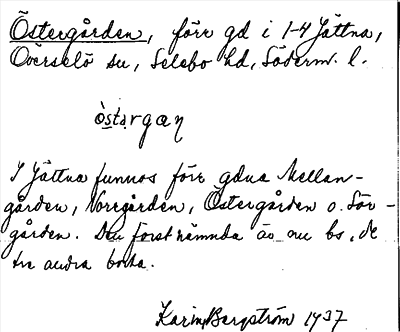 Östergården, förr gd i 1-4 Jättna,
Överselö sn, Selebo hd, Söderm. l.
òstərgæɳ
I Jättna funnos förr gdna Mellan-
gården, Norrgården, Östergården o. Sör-
gården. Den förstnämnda är nu bs, de
tre andra borta.
Karin Bergström 1937